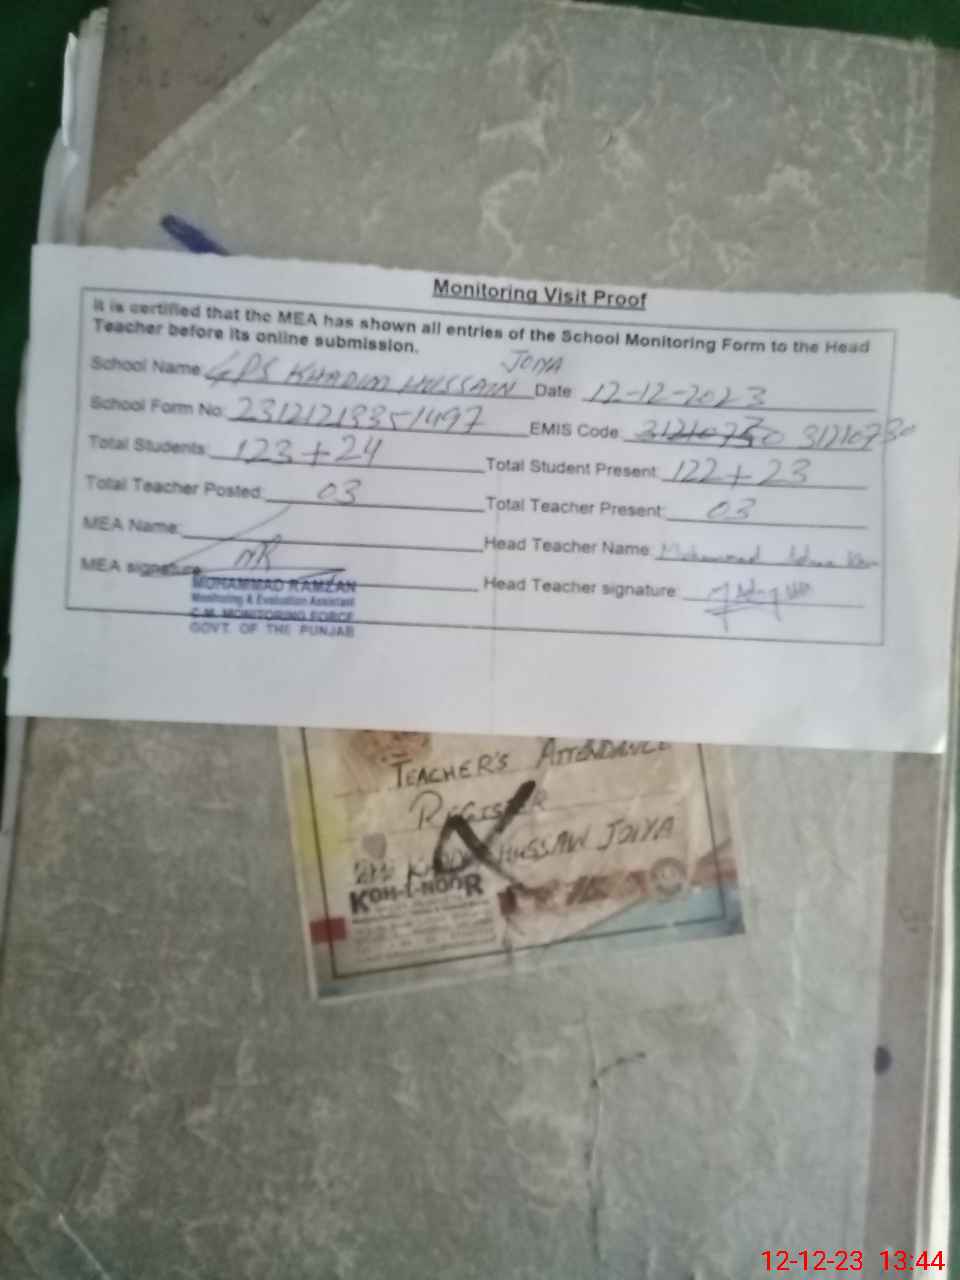 Monitoring Visit Proof
It is certified that the MEA has shown all entries of the School Monitoring Form to the Head
Teacher before its online submission.
School Name: GPS KHADIM HUSSAIN JOIYA Date: 12-12-2023
School Form No: EMIS Code: 31210730
Total Students: 123+24 Total Student Present: 122+23
Total Teacher Posted: 03 Total Teacher Present: 03
MEA Name: Head Teacher Name: Muhammad
MEA signature: MR Head Teacher signature:
MUHAMMAD RAMZAN
Monitoring & Evaluation Assistant
C.M. MONITORING FORCE
GOVT. OF THE PUNJAB
TEACHER'S ATTENDANCE
REGISTER
HUSSAIN JOIYA
KOH-I-NOOR
12-12-23 13:44